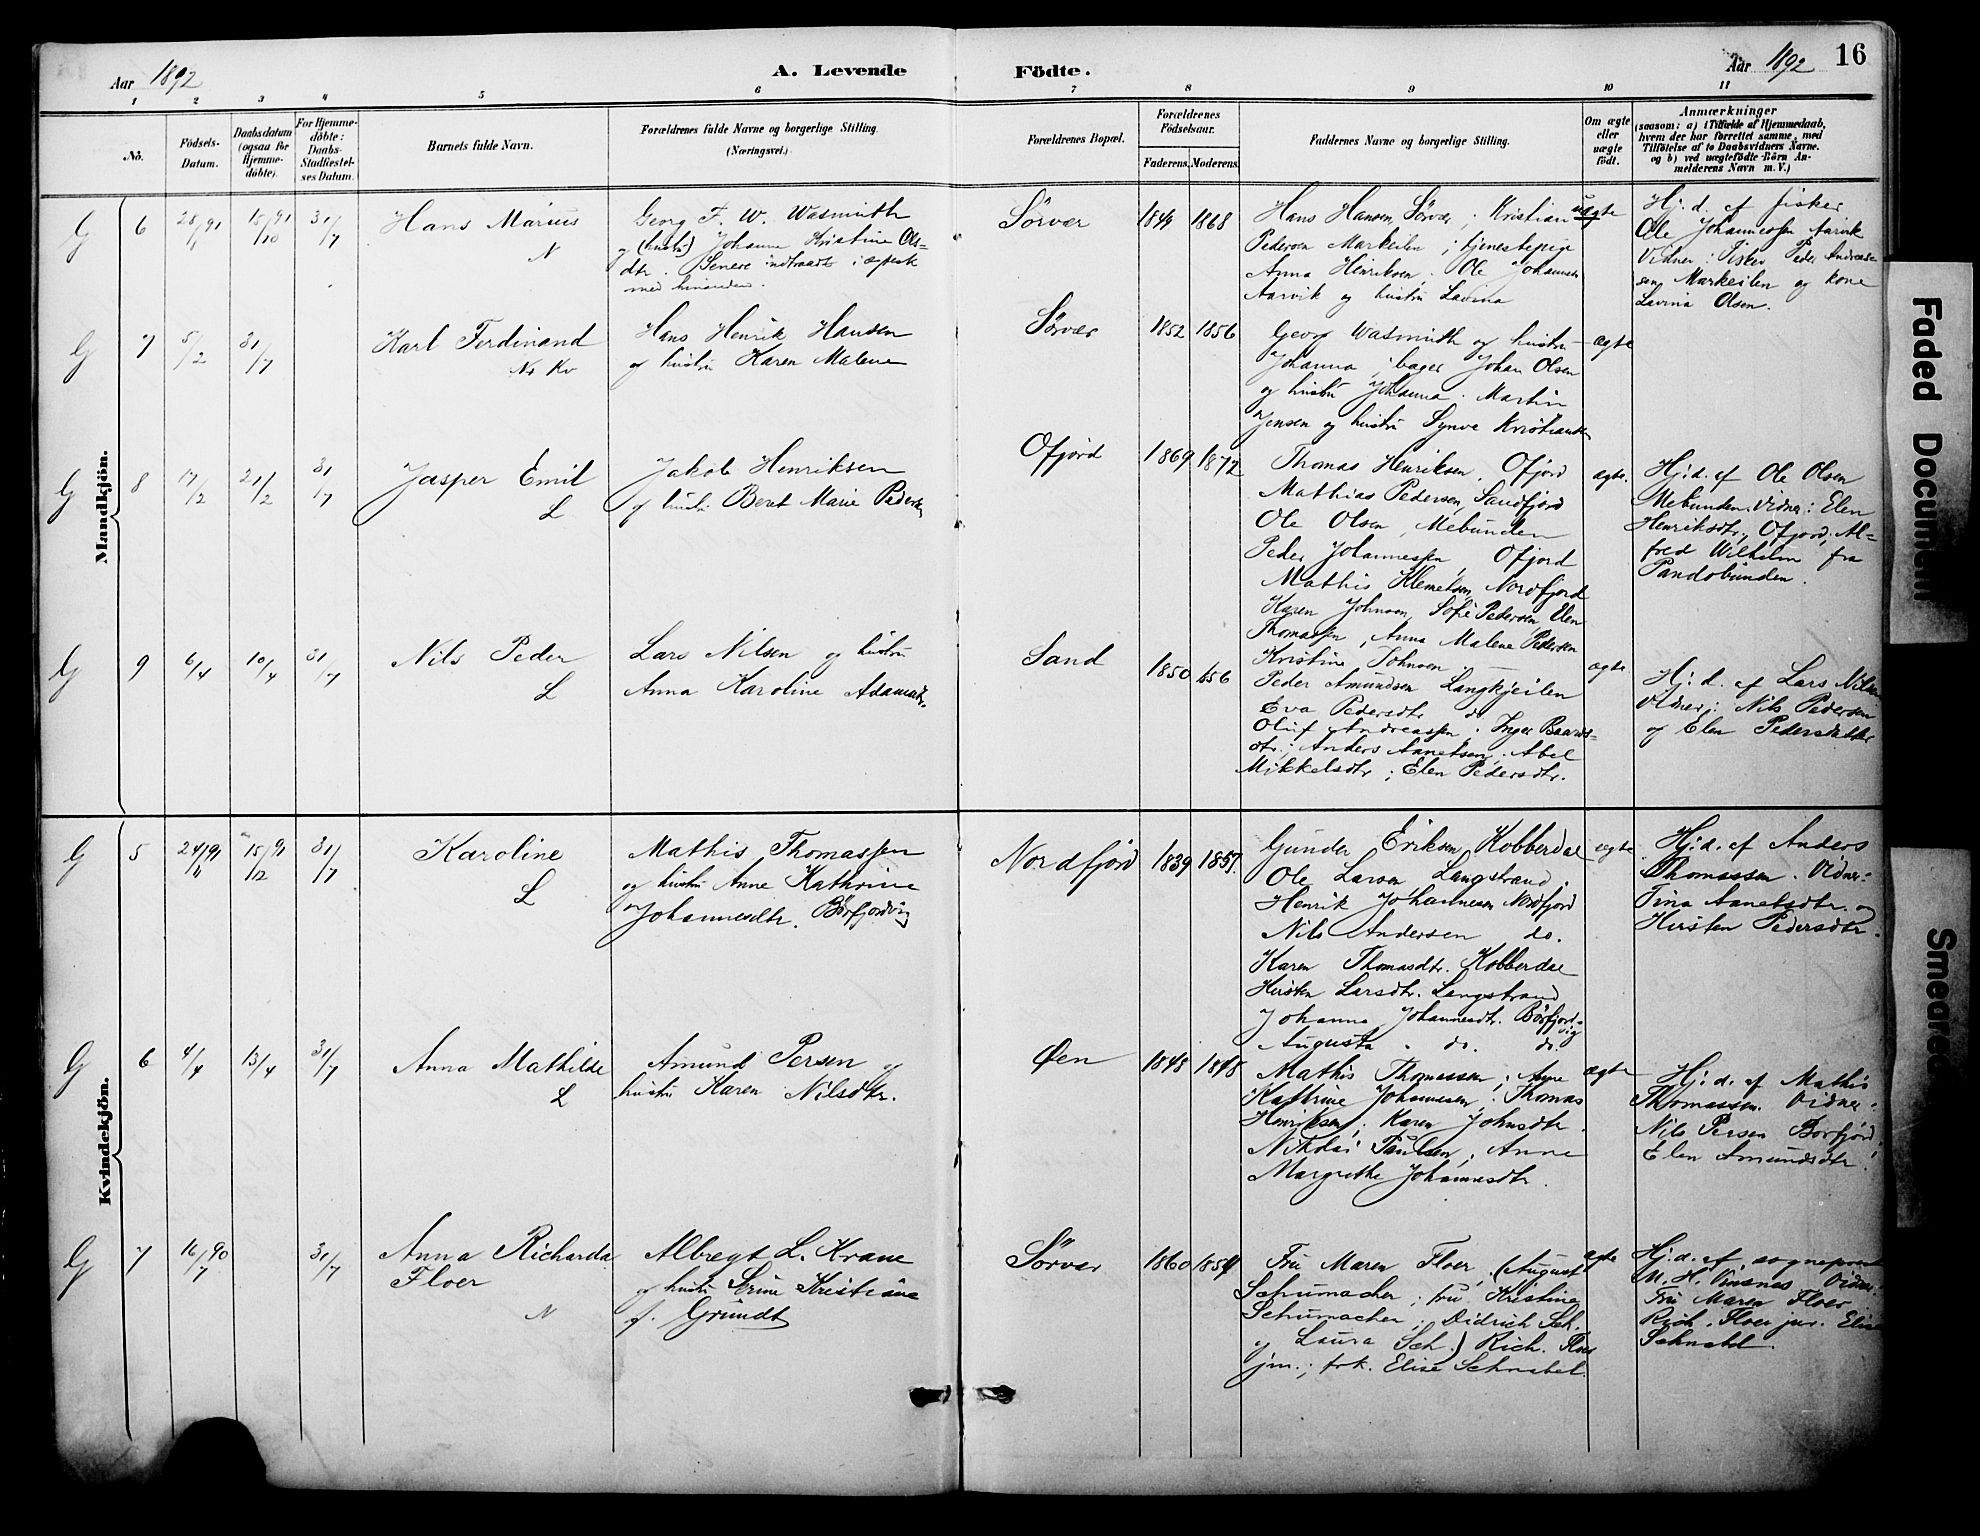 Aar 1892
A. Levende
Födte.
Aar 1892
16
1 2 3 4 5 6 7 8 9 10 11
No.
Födsels-
Datum.
Daabsdatum
(ogsaa for
Hjemme-
döbte).
For Hjemme-
döbte:
Daabs-
Stadfæstel-
ses Datum.
Barnets fulde Navn.
Forældrenes fulde Navne og borgerlige Stilling.
(Næringsvei.)
Forældrenes Bopæl.
Forældrenes
Födselsaar.
Faderens.
Moderens.
Faddernes Navne og borgerlige Stilling.
Om ægte
eller
uægte
födt.
Anmærkninger
(saasom: a) i Tilfælde af Hjemmedaab,
hvem der har forrettet samme, med
Tilföielse af to Daabsvidners Navne.
og b) ved uægtefödte Börn An-
melderens Navn m. V.)
Mandkjön.
G 6 28/91 15/10 91 31/7
Hans Marius
N
Georg F. W. Wasmuth
og (hustr) Johanne Kristine Ols-
dtr. Senere indtraadt i ægtesk
med hinanden.
Sörvær
1844 1868
Hans Hansen, Sörvær; Kristian
Pedersen Markeilen; tjenestepige
Anna Henriksen. Ole Johannsen
Aarvik og hustru Lavina
uægte
Hj. d. af fisker
Ole Johannessen Aarvik
Vidner: Fisker Peder Andreas-
sen, Markeilen og kone
Lavina Olsen.
G 7 5/2 31/7
Karl Ferdinand
N. Kv
Hans Henrik Hansen
og hustru Karen Malene
Sörvær
1852 1856
Georg Wasmuth og hustru
Johanna; bager Johan Olsen
og hustru Johanna. Martin
Jensen og hustru Synve Kristiansen
ægte
G 8 17/2 21/2 31/7
Jasper Emil
L
Jakob Henriksen
og hustru Beret Marie Pedersen
Ofjord
1869 1872
Thomas Henriksen, Ofjord
Mathias Pedersen, Sandfjord
Ole Olsen, Mebunden
Peder Johannessen, Ofjord
Mathis Klemetsen, Nordfjord
Karen Johnsen, Sofie Pedersen, Elen
Thomassen, Anna Malene Pedersen
Kristine Johnsen.
ægte.
Hj. d. af Ole Olsen
Mebunden. Vidner: Elen
Henriksdtr, Ofjord, Al-
fred Wilhelm fra
Pandobunden.
G 9 6/4 10/4 31/7
Nils Peder
L
Lars Nilsen og hustru
Anna Karoline Adamsdtr.
Sand
1850 1856
Peder Amundsen Langkjeilen
Eva Pedersdtr do
Oluf Andreassen. Inger Baards-
dtr; Anders Aanetsen; Abel
Mikkelsdtr; Elen Pedersdtr.
ægte.
Hj. d. af Lars Nilsen
Vidner: Nils Pedersen
og Elen Pedersdatter
Kvindekjön.
G 5 24/11 91 15/12 91 31/7
Karoline
L
Mathis Thomassen
og hustru Anne Kathrine
Johannesdtr. Börfjordvig
Nordfjord
1839 1857.
Gunder Eriksen Kobberdal
Ole Larsen Langstrand.
Henrik Johannesen Nordfjord
Nils Andersen do.
Karen Thomasdtr. Kobberdal
Kirsten Larsdtr. Langstrand
Johanna Johannesdtr. Börfjord-
vig
Augusta do. do.
ægte
Hj. d. af Anders
Thomassen. Vidner:
Tina Aanetsdtr. og
Kirsten Pedersdtr.
G 6 4/4 13/4 31/7
Anna Mathilde
L
Amund Persen og
hustru Karen Nilsdtr.
Öen
1848 1848
Mathis Thomassen; Anne
Kathrine Johannesen; Thomas
Henriksen; Karen Johnsdtr.
Nikolai Paulsen; Anne
Margrethe Johannesdtr.
ægte
Hj. d. af Mathis
Thomassen. Vidner:
Nils Persen Börfjord;
Elen Amundsdtr.
G 7 16/7 90 31/7
Anna Richarda
Floer
N
Albregt L. Krane
og hustr Serine Kristiane
f. Grundt
Sörvær
1860 1854
Fru Maren Floer, (August
Schumacher; fru Kristine
Schumacher; Didrich Sch.
og Laura Sch.) Rich. Floer
jun.; frk. Elise Schnabel.
ægte
Hj. d. af sogneprest
M. H. Vinsnes. Vidner
Fru Maren Floer.
Rich. Floer jur. Elise
Schnabel.
Faded Document
Smeared